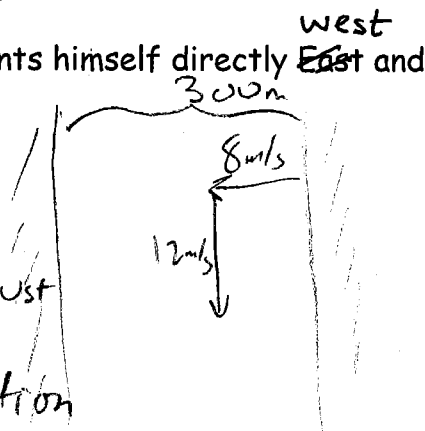 west
nts himself directly East and
300m
8m/s
12m/s
ust
tion